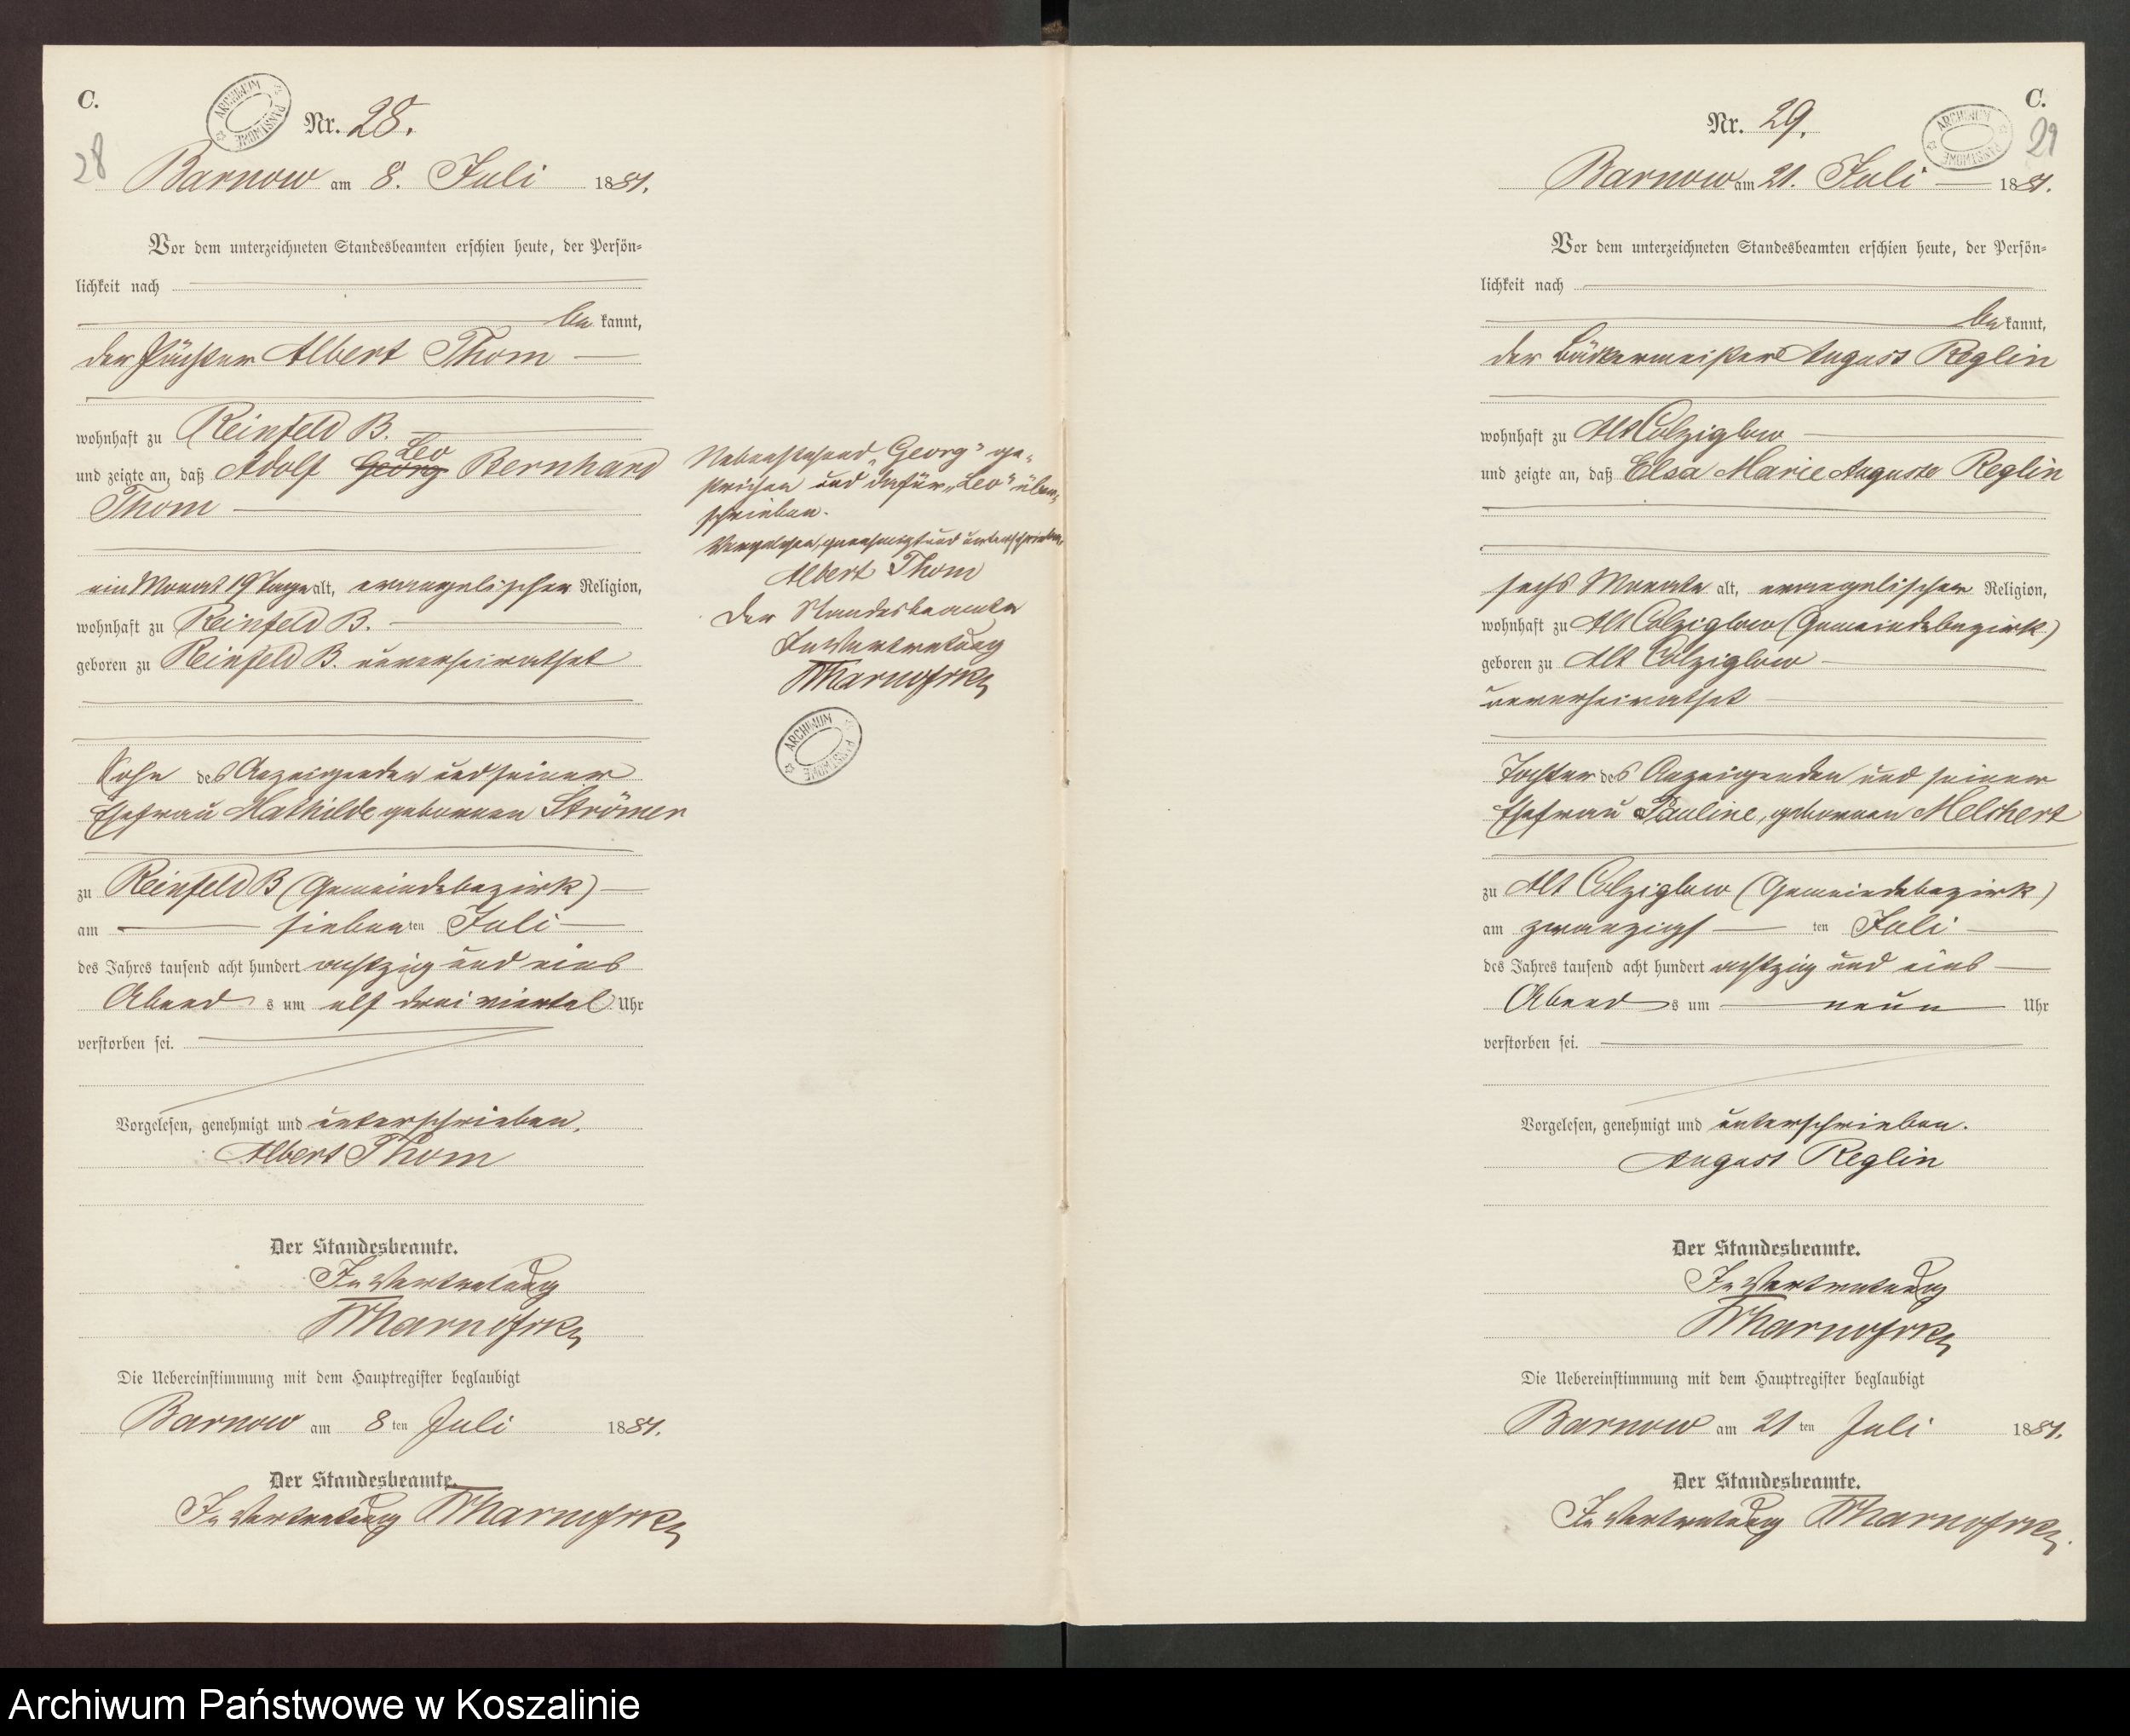 C.
ARCHIWUM PAŃSTWOWE
Nr. 28.
28
Barnow am 8. Juli 1881.
Vor dem unterzeichneten Standesbeamten erschien heute, der Persön-
lichkeit nach
be kannt,
der Pächter Albert Thom
wohnhaft zu Reinfeld B.
Leo
und zeigte an, daß Adolf Georg Bernhard
Thom
ein Monat 19 Tage alt, evangelischer Religion,
wohnhaft zu Reinfeld B.
geboren zu Reinfeld B. unverheirathet
Sohn des Anzeigenden und seiner
Ehefrau Mathilde geborenen Strömer
zu Reinfeld B (Gemeindebezirk)
am sieben ten Juli
des Jahres tausend acht hundert achtzig und eins
Abend s um elf drei viertel Uhr
verstorben sei.
Vorgelesen, genehmigt und unterschrieben.
Albert Thom
Der Standesbeamte.
In Vertretung
Die Uebereinstimmung mit dem Hauptregister beglaubigt
Barnow am 8 ten Juli 1881.
Der Standesbeamte.
In Vertretung
Nebenstehend „Georg" ge-
strichen und dafür „Leo" über-
schrieben.
Vorgelesen, genehmigt und unterschrieben
Albert Thom
Der Standesbeamte
In Vertretung
ARCHIWUM PAŃSTWOWE
C.
Nr. 29.
ARCHIWUM PAŃSTWOWE
29
Barnow am 21. Juli 1881.
Vor dem unterzeichneten Standesbeamten erschien heute, der Persön-
lichkeit nach
be kannt,
der Bäckermeister August Reglin
wohnhaft zu Alt Colziglow
und zeigte an, daß Elsa Marie Auguste Reglin
sechs Monate alt, evangelischer Religion,
wohnhaft zu Alt Colziglow (Gemeindebezirk)
geboren zu Alt Colziglow
unverheirathet
Tochter des Anzeigenden und seiner
Ehefrau Pauline, geborenen Melchert
zu Alt Colziglow (Gemeindebezirk)
am zwanzigs ten Juli
des Jahres tausend acht hundert achtzig und eins
Abend s um neun Uhr
verstorben sei.
Vorgelesen, genehmigt und unterschrieben.
August Reglin
Der Standesbeamte.
In Vertretung
Die Uebereinstimmung mit dem Hauptregister beglaubigt
Barnow am 21 ten Juli 1881.
Der Standesbeamte.
In Vertretung
Archiwum Państwowe w Koszalinie